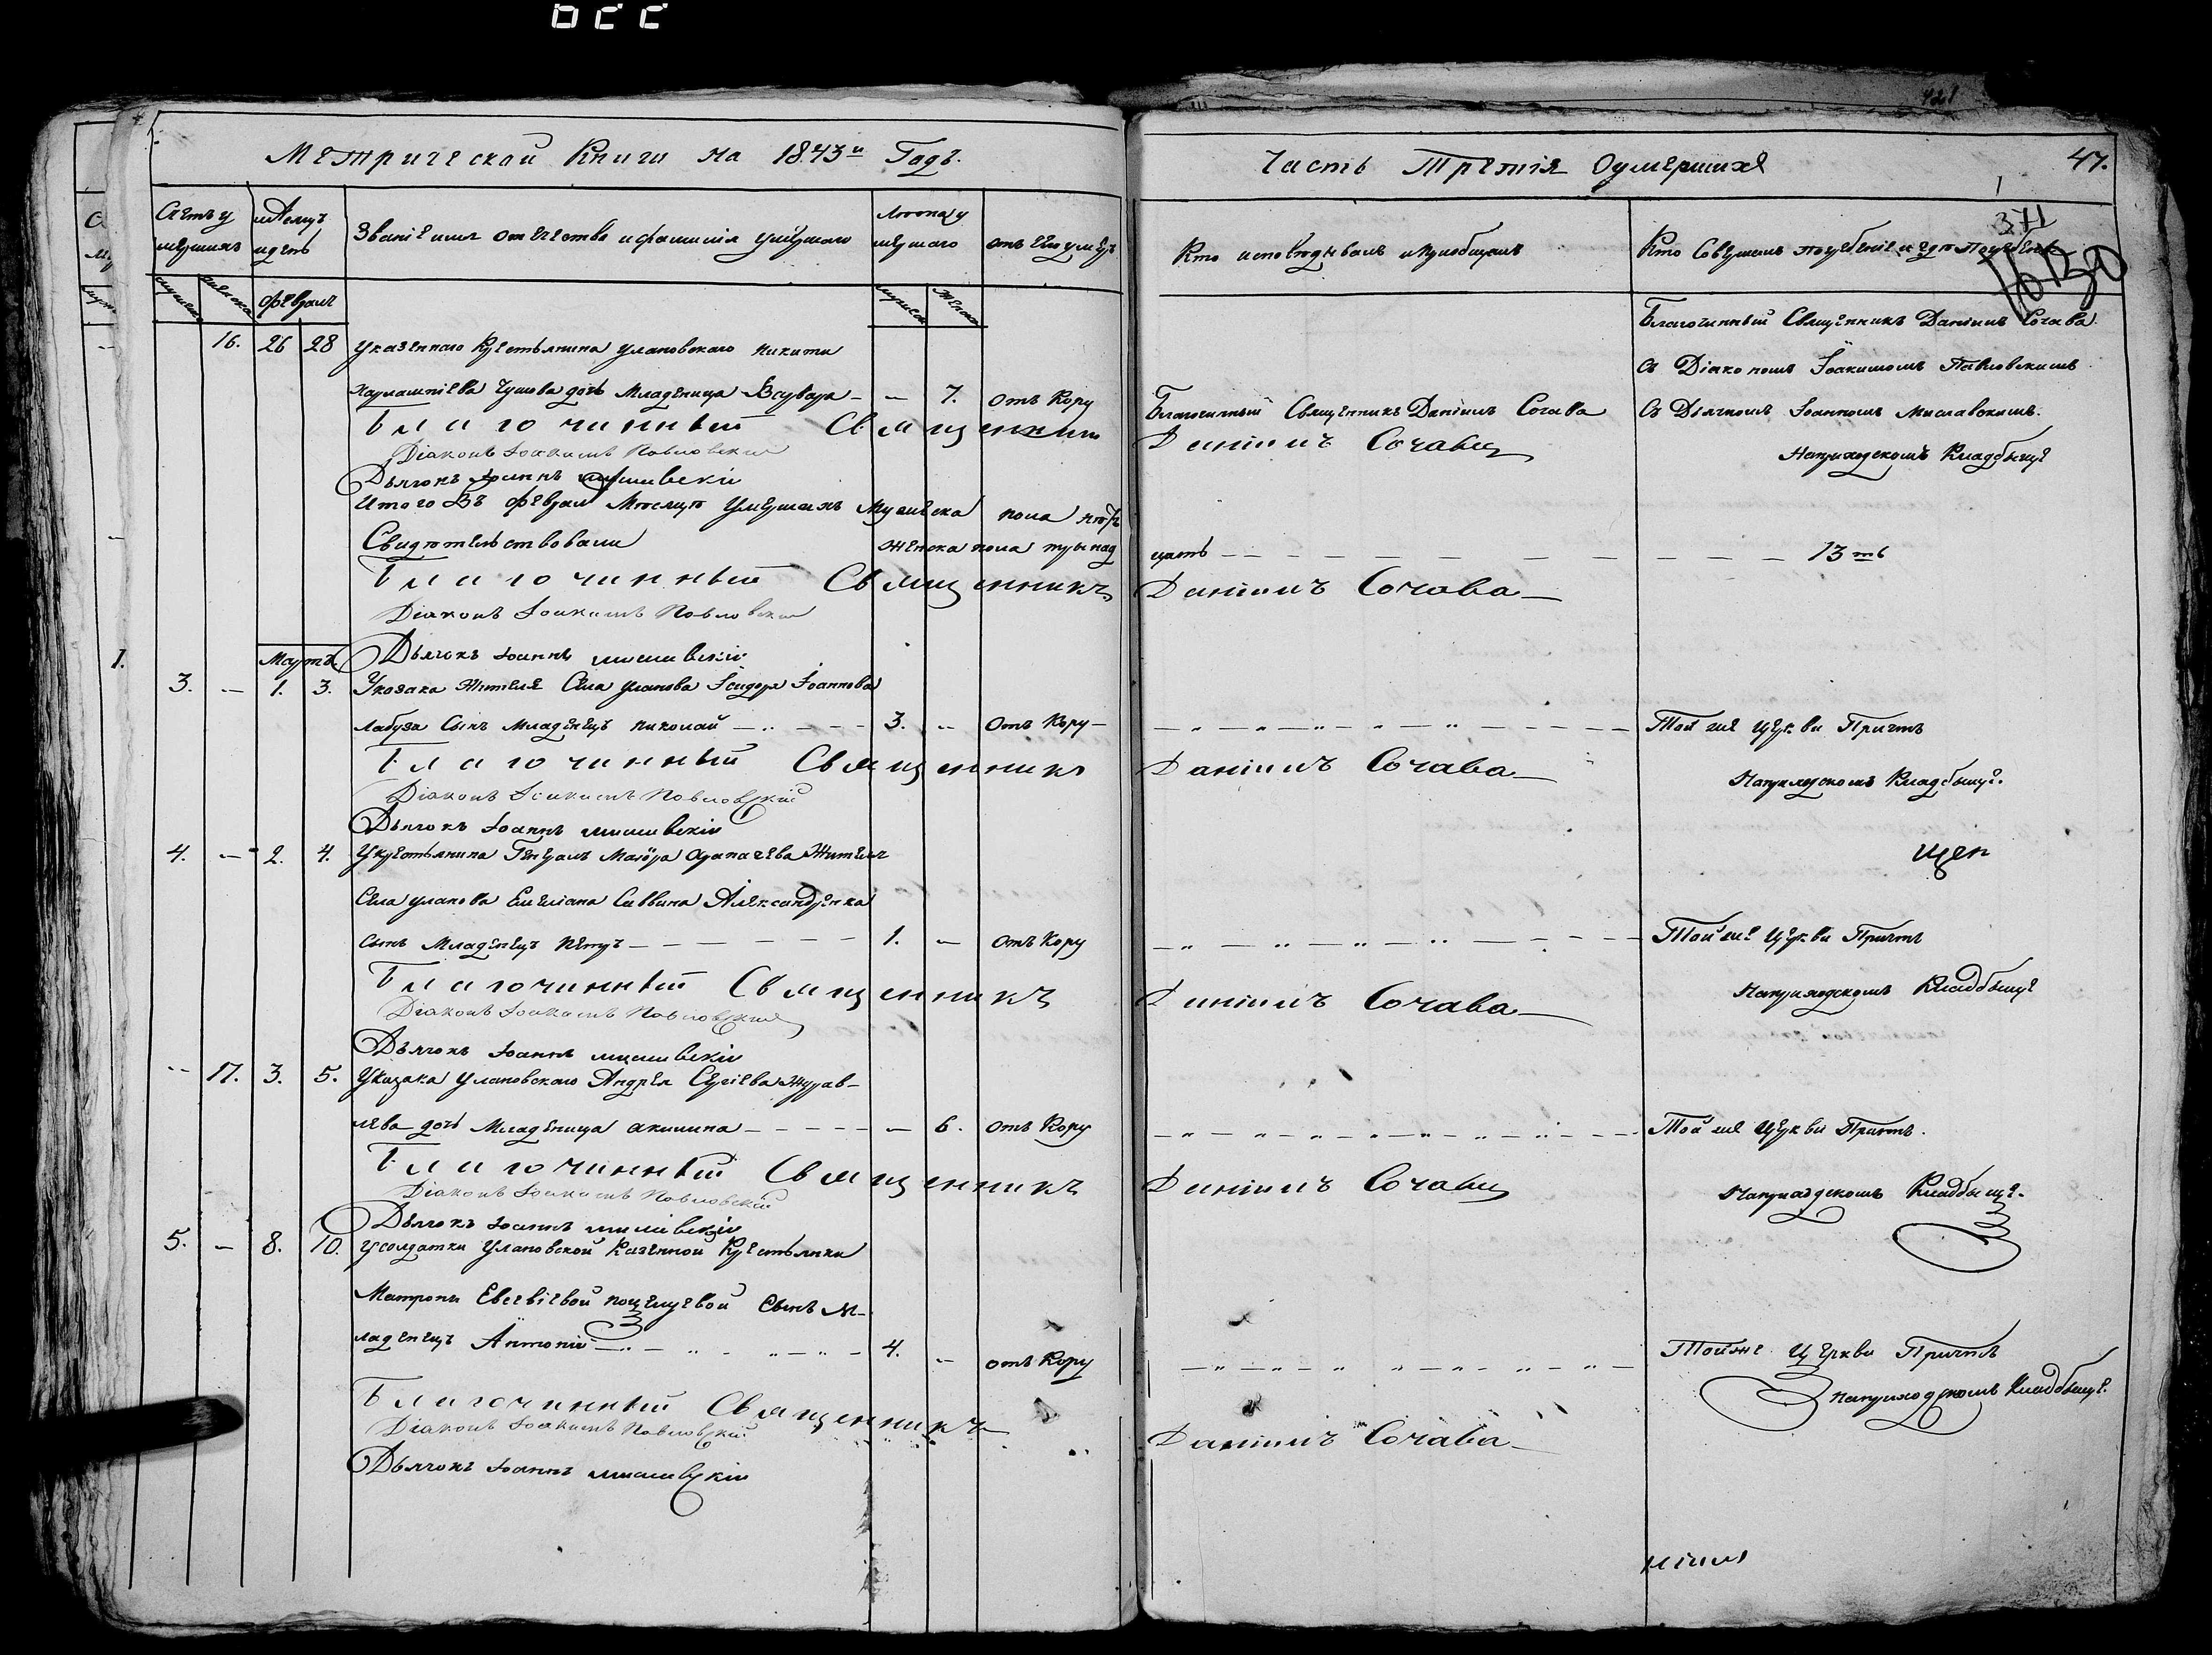 Метрической Книги на 1843й Годъ.
Часть Третія Оумершихъ
47.
421
371
Счетъ умершихъ
Мѣсяцъ и день
Званіе имя отечество и фамилія умершаго
Лѣта умершаго
отъ чего умеръ
Кто исповѣдывалъ и пріобщалъ
Кто Совершалъ погребеніе и гдѣ погребены
мужеска
женска
февраль
мужеска
женска
16. 26 28 Указеннаго Крестьянина улановскаго Никити
Харлампіева Чумова дочь Младеница Варвара — — 7. отъ Кору
Благочинный Священникъ Даніилъ Сочава
Благочинный Священникъ Даніилъ Сочава
съ Діакономъ Іоакимомъ Павловскимъ
съ Дьячкомъ Іоанномъ Миславскимъ.
На приходскомъ Кладбыще
Благочинный Священникъ Даніилъ Сочава
Діаконъ Іоакимъ Павловскій
Дьячокъ Іоаннъ
Итого Въ февралѣ Мѣсяцѣ Умершихъ Мужеска пола
женска пола тринад цать — — — 13ть
Свидѣтельствовали
Благочинный Священникъ Даніилъ Сочава
Діаконъ Іоакимъ Павловскій
Дьячокъ Іоаннъ
Мартъ
3. — 1. 3. Указака Жителя Села Уланова Ісидора Іоаннова
Лабуза Сынъ Младенецъ Николай — 3. — Отъ Кору —
Той же Церкви Причтъ
На приходскомъ Кладбыще.
Благочинный Священникъ Даніилъ Сочава
Діаконъ Іоакимъ Павловскій
Дьячокъ Іоаннъ
4. — 2. 4. Укрестьянина Генералъ Маіора Жителя
Села Уланова Емеліана Саввина Александренка
сынъ Младенецъ Петръ — 1. — отъ Кору
Той же Церкви Причтъ
На приходскомъ Кладбыще
Благочинный Священникъ Даніилъ Сочава
Діаконъ Іоакимъ Павловскій
Дьячокъ Іоаннъ
— 17. 3. 5. Указака Улановскаго Андрея Сергіева Журав-
лева дочь Младеница Акилина — — 6. отъ Кору
Той же Церкви Причтъ.
На приходскомъ Кладбыще.
Благочинный Священникъ Даніилъ Сочава
Діаконъ Іоакимъ Павловскій
Дьячокъ Іоаннъ
5. — 8. 10. Усолдатки Улановской Казенной Крестьянки
Матроны Евсевіевой Поцелуевой Сынъ М-
ладенецъ Антоній — 4. — отъ Кору
Тойже Церкви Причтъ
На приходскомъ Кладбыще.
Благочинный Священникъ Даніилъ Сочава
Діаконъ Іоакимъ Павловскій
Дьячокъ Іоаннъ